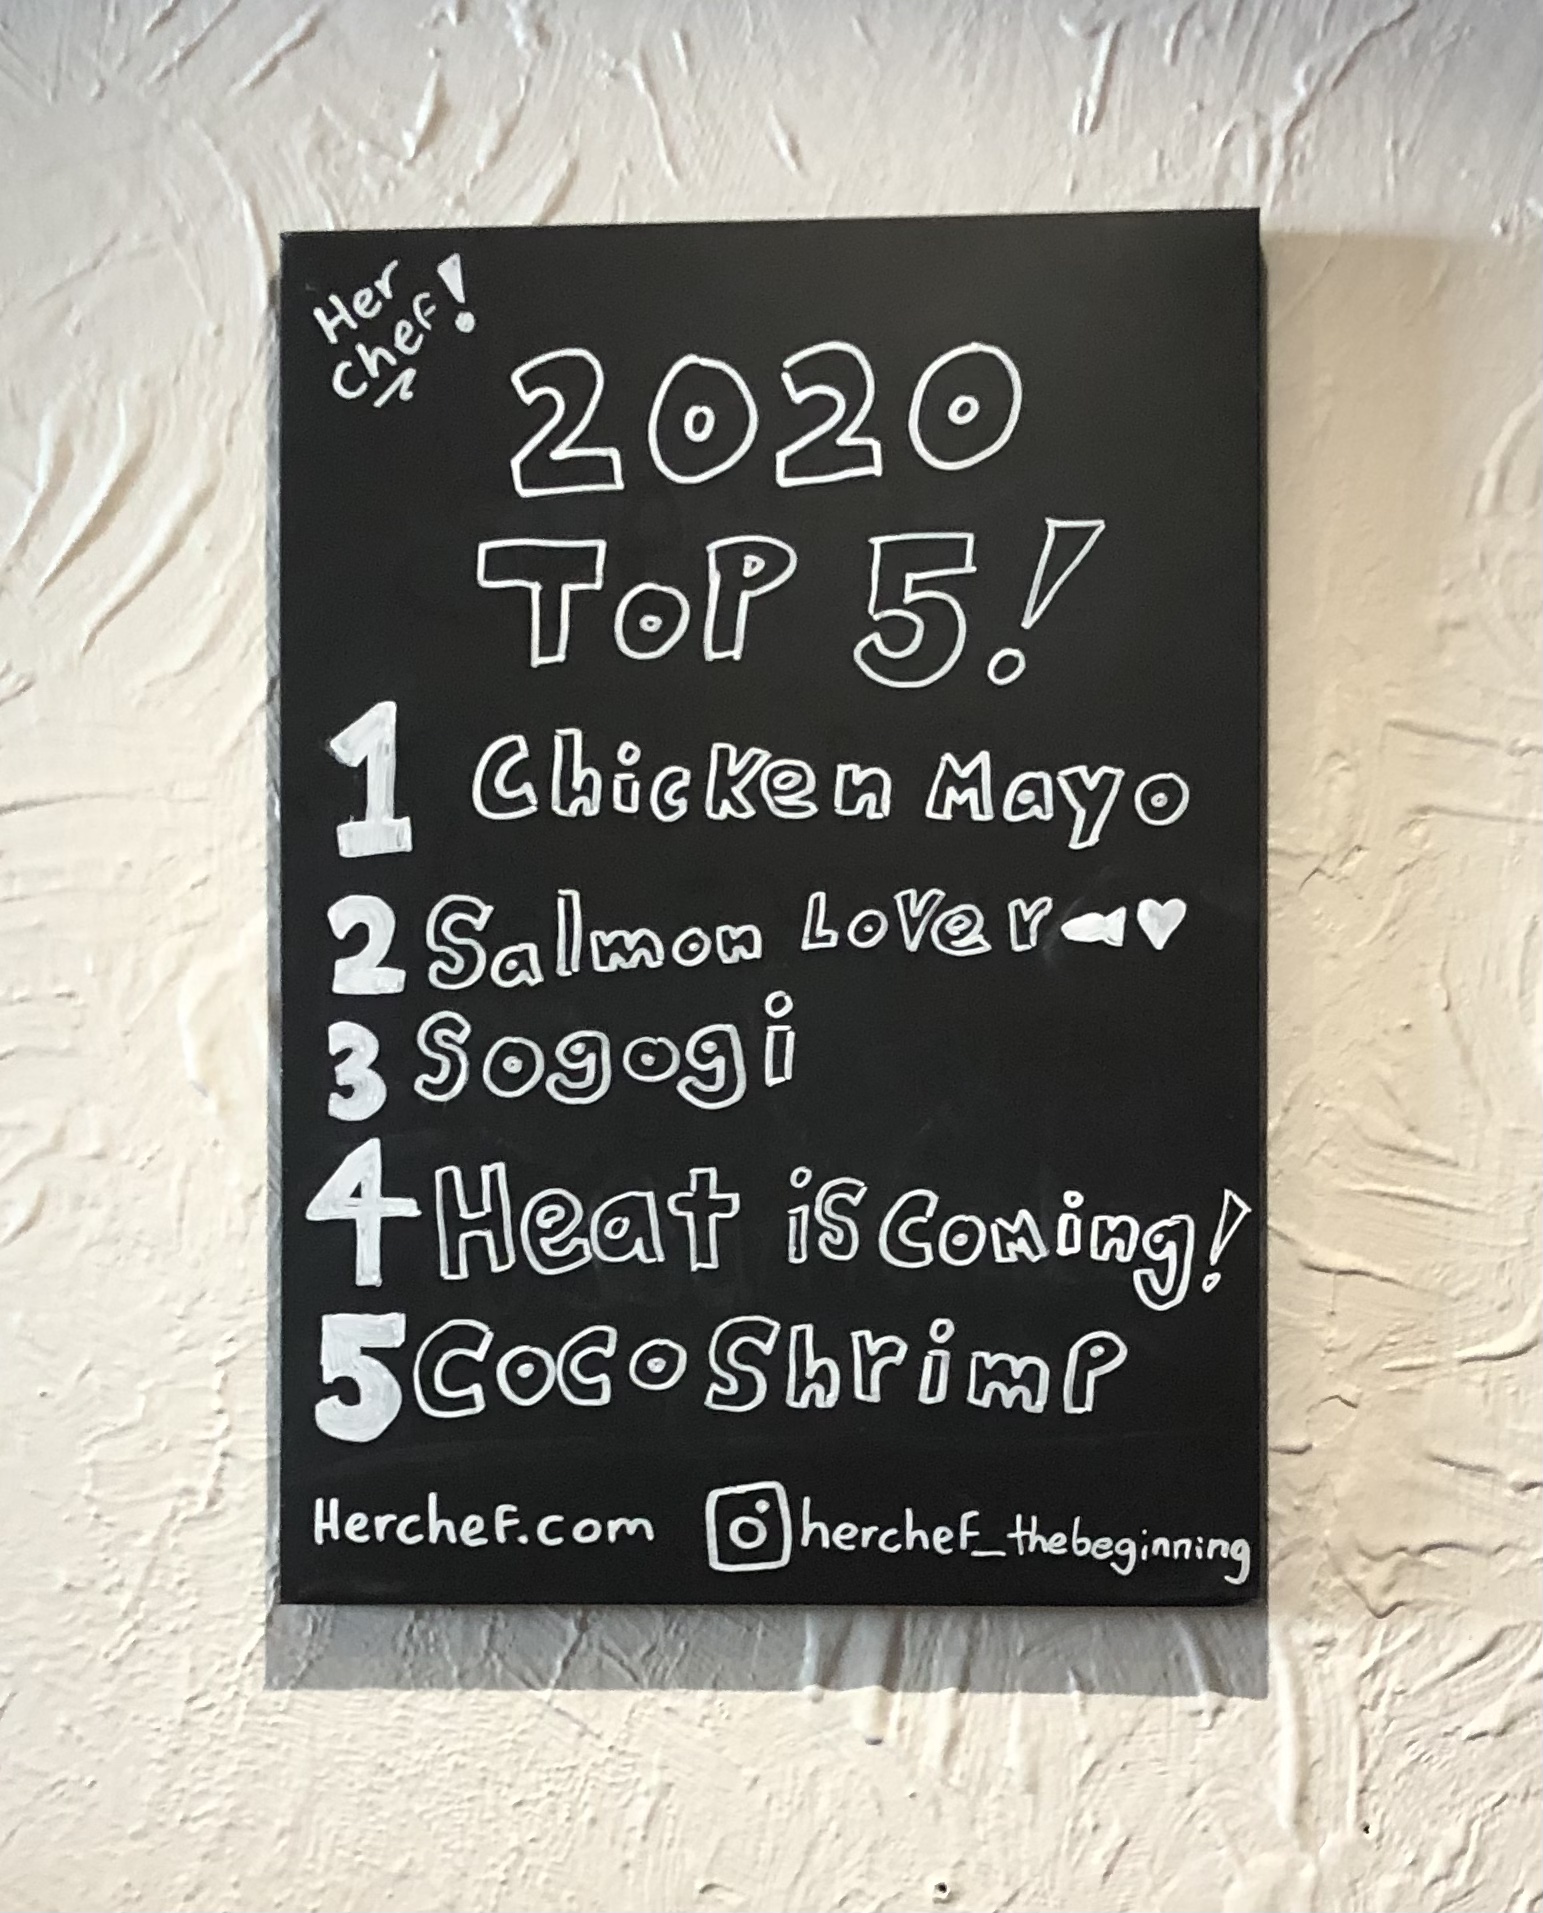 Her
Chef!
2020
ToP 5!
1 Chicken Mayo
2 Salmon Lover
3 Sogogi
4 Heat is Coming!
5 Coco Shrimp
Herchef.com herchef_thebeginning